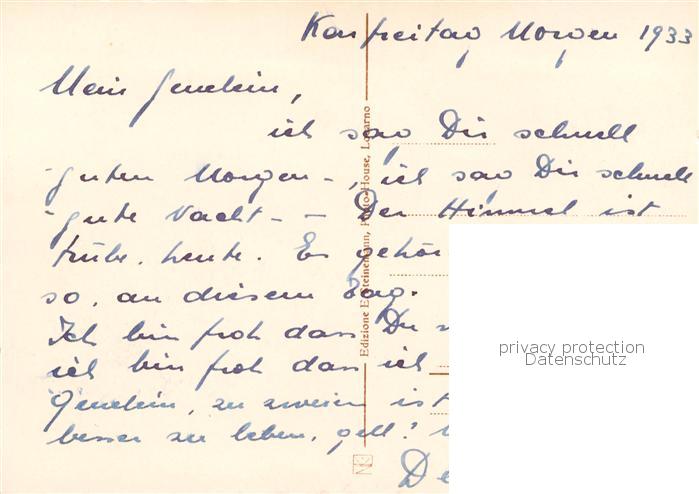 Karfreitag Morgen 1933
Mein
ich sag Dir schnell
guten Morgen -, ich sag Dir schnell
gute Nacht - - Der Himmel ist
trübe, heute. Es gehör
so, an diesem Tag.
Ich bin froh dass Du
ich bin froh dass ich
zu zweien ist
besser zu leben, gell?
De
Edizione E. Steinemann, Photo-House, Locarno
privacy protection
Datenschutz